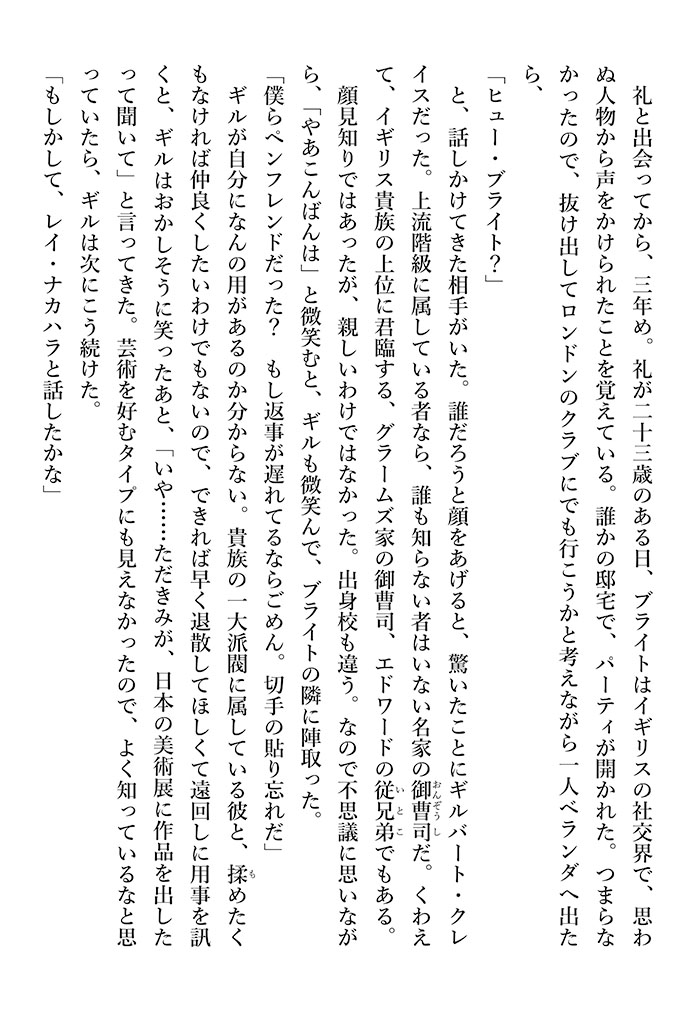 礼と出会ってから、三年め。礼が二十三歳のある日、ブライトはイギリスの社交界で、思わ
ぬ人物から声をかけられたことを覚えている。誰かの邸宅で、パーティが開かれた。つまらな
かったので、抜け出してロンドンのクラブにでも行こうかと考えながら一人ベランダへ出た
ら、
「ヒュー・ブライト？」
と、話しかけてきた相手がいた。誰だろうと顔をあげると、驚いたことにギルバート・クレ
イスだった。上流階級に属している者なら、誰も知らない者はいない名家の御曹司だ。くわえ
て、イギリス貴族の上位に君臨する、グラームズ家の御曹司、エドワードの従兄弟でもある。
顔見知りではあったが、親しいわけではなかった。出身校も違う。なので不思議に思いなが
ら、「やあこんばんは」と微笑むと、ギルも微笑んで、ブライトの隣に陣取った。
「僕らペンフレンドだった？　もし返事が遅れてるならごめん。切手の貼り忘れだ」
ギルが自分になんの用があるのか分からない。貴族の一大派閥に属している彼と、揉めたく
もなければ仲良くしたいわけでもないので、できれば早く退散してほしくて遠回しに用事を訊
くと、ギルはおかしそうに笑ったあと、「いや……ただきみが、日本の美術展に作品を出した
って聞いて」と言ってきた。芸術を好むタイプにも見えなかったので、よく知っているなと思
っていたら、ギルは次にこう続けた。
「もしかして、レイ・ナカハラと話したかな」